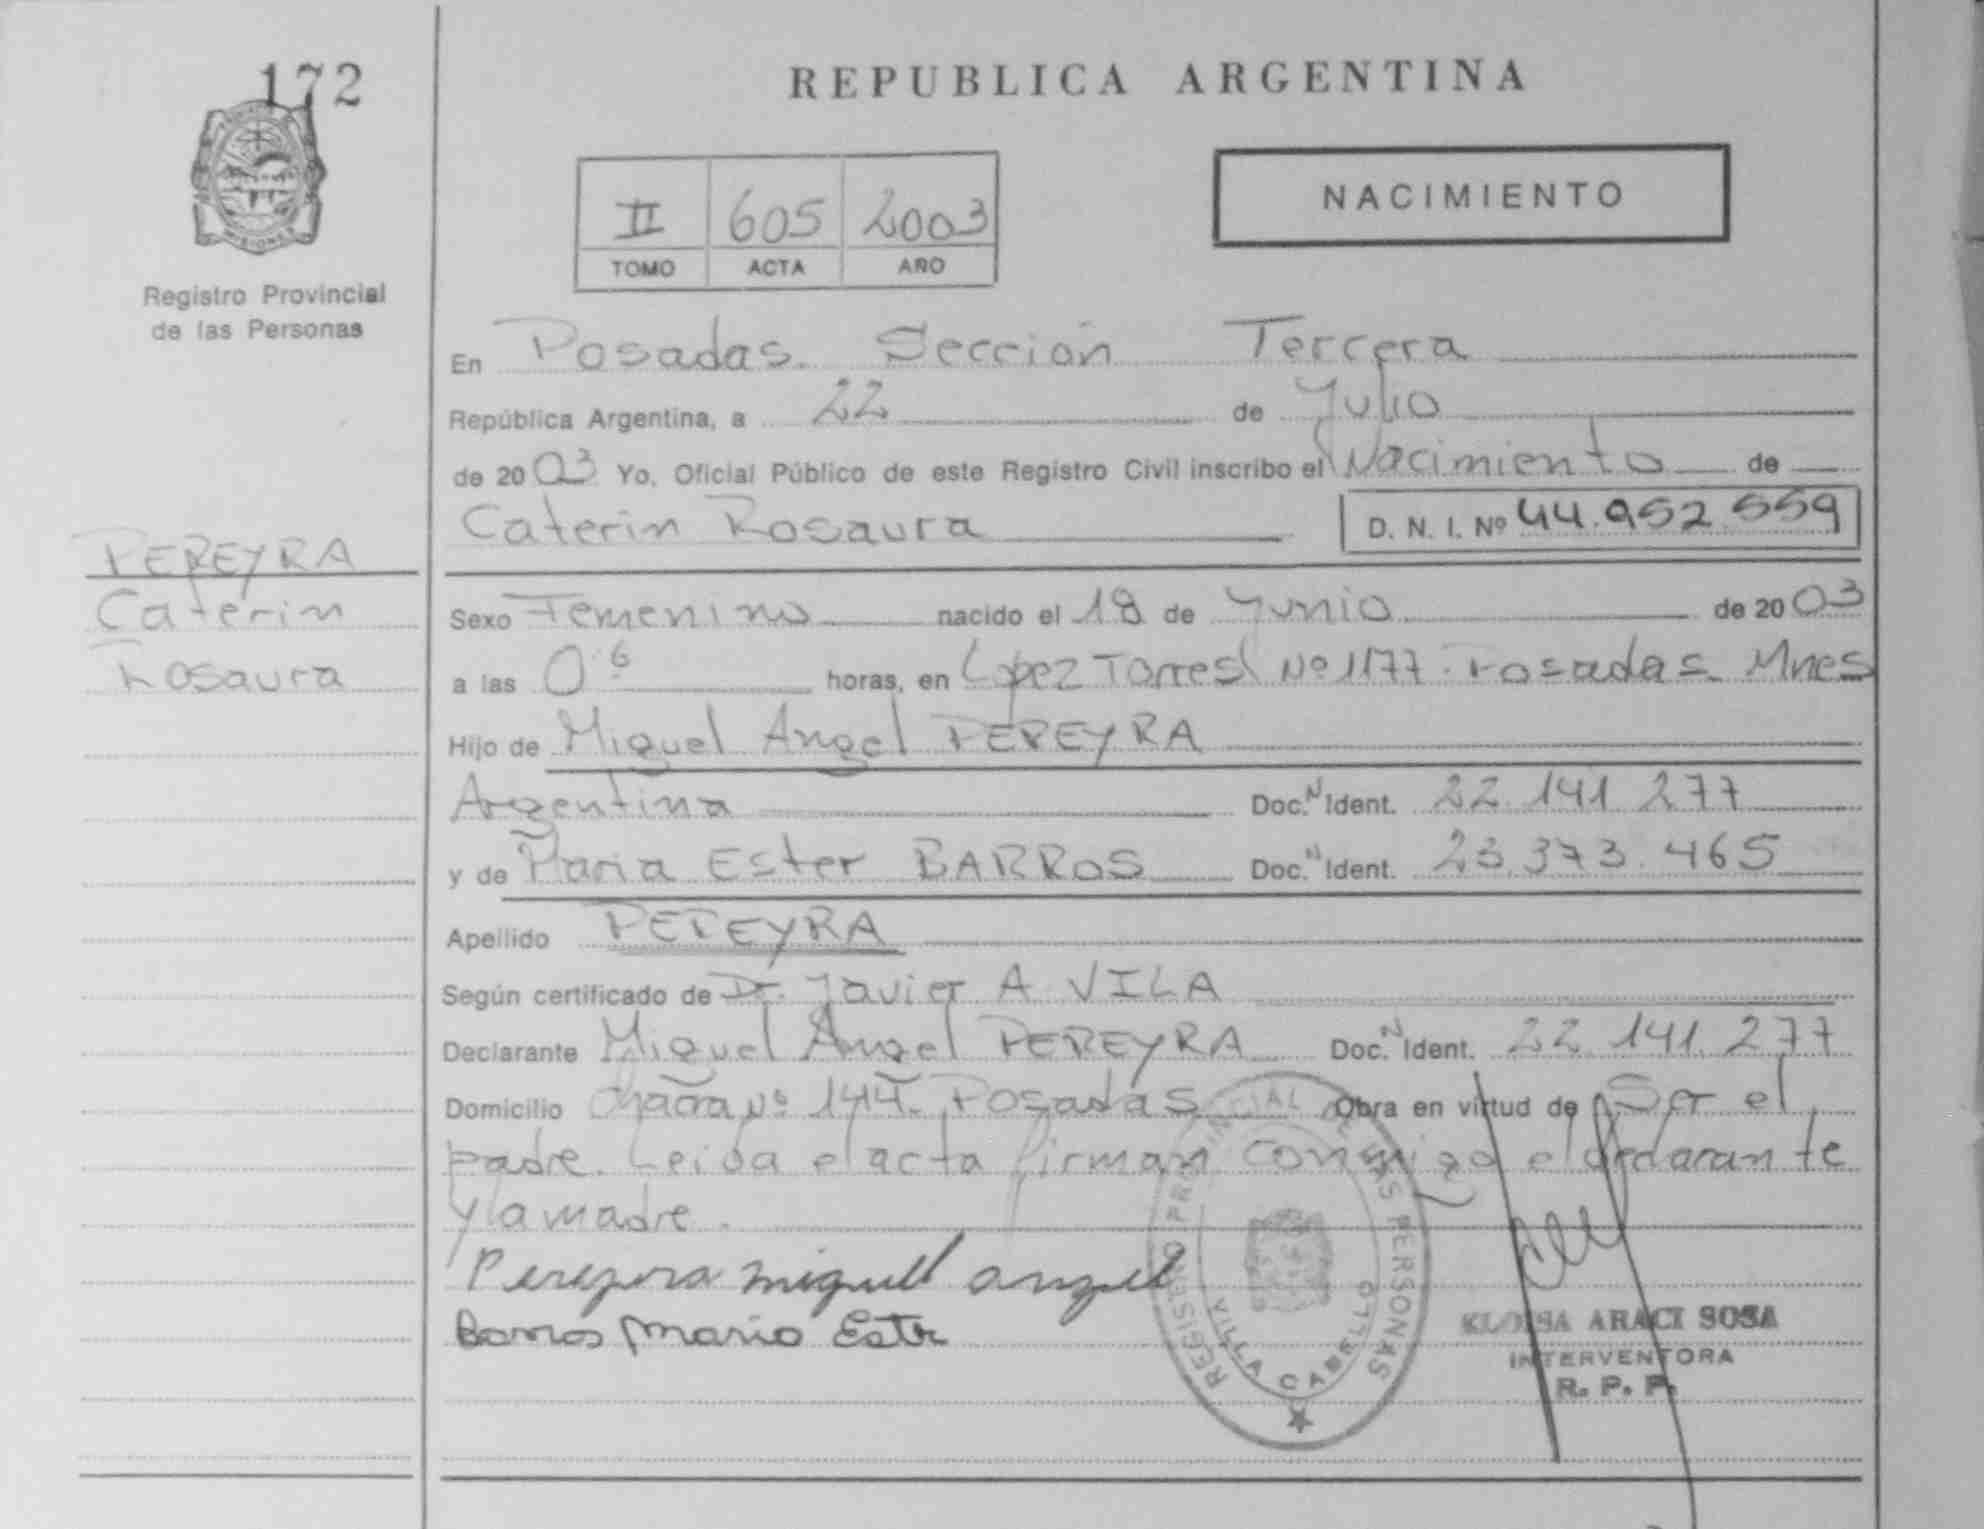 172
MISIONES
Registro Provincial
de las Personas
PEREYRA
Caterin
Rosaura
REPUBLICA ARGENTINA
II 605 2003
TOMO ACTA AÑO
NACIMIENTO
En Posadas. Sección Tercera
República Argentina, a 22 de Julio
de 2003 Yo, Oficial Público de este Registro Civil inscribo el Nacimiento de
Caterin Rosaura D. N. I. Nº 44.952.559
Sexo Femenino nacido el 18 de Junio de 2003
a las 0.6 horas, en Lopez Torres Nº 1177. Posadas. Mnes
Hijo de Miguel Angel PEREYRA
Argentina Doc. N Ident. 22.141.277
y de Maria Ester BARROS Doc. N Ident. 23.373.465
Apellido PEREYRA
Según certificado de Dr. Javier A VILA
Declarante Miguel Angel PEREYRA Doc. N Ident. 22.141.277
Domicilio Chacra Nº 144. Posadas Obra en virtud de Ser el
padre. Leida el acta firman conmigo el declarante
y la madre.
Pereyra miguel angel
Barros Maria Ester
REGISTRO PROVINCIAL DE LAS PERSONAS
VILLA CABELLO
ELOISA ARACI SOSA
INTERVENTORA
R. P. P.